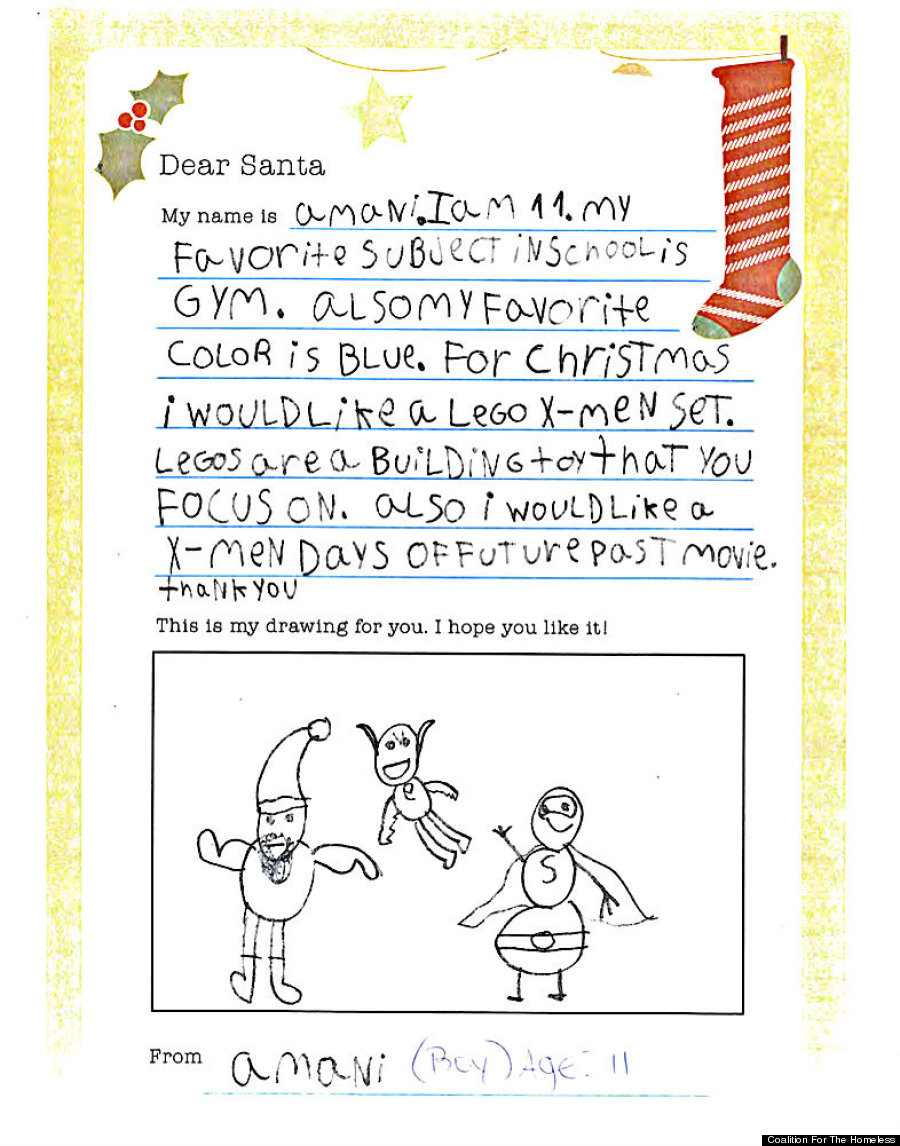 Dear Santa
My name is amani. I am 11. my
Favorite SUBJECT in School is
GYM. aLSO MY Favorite
COLOR is BLUe. For ChriSTmas
i WOULD Like a LeGO X-meN SeT.
LeGOS are a BUiLDiNG toy thaT YOU
FOCUS ON. aLSO i WOULD Like a
X-meN DaYS OF FUTUre PaST movie.
thaNK YOU
This is my drawing for you. I hope you like it!
e
S
From amaNi (Boy) Age: 11
Coalition For The Homeless